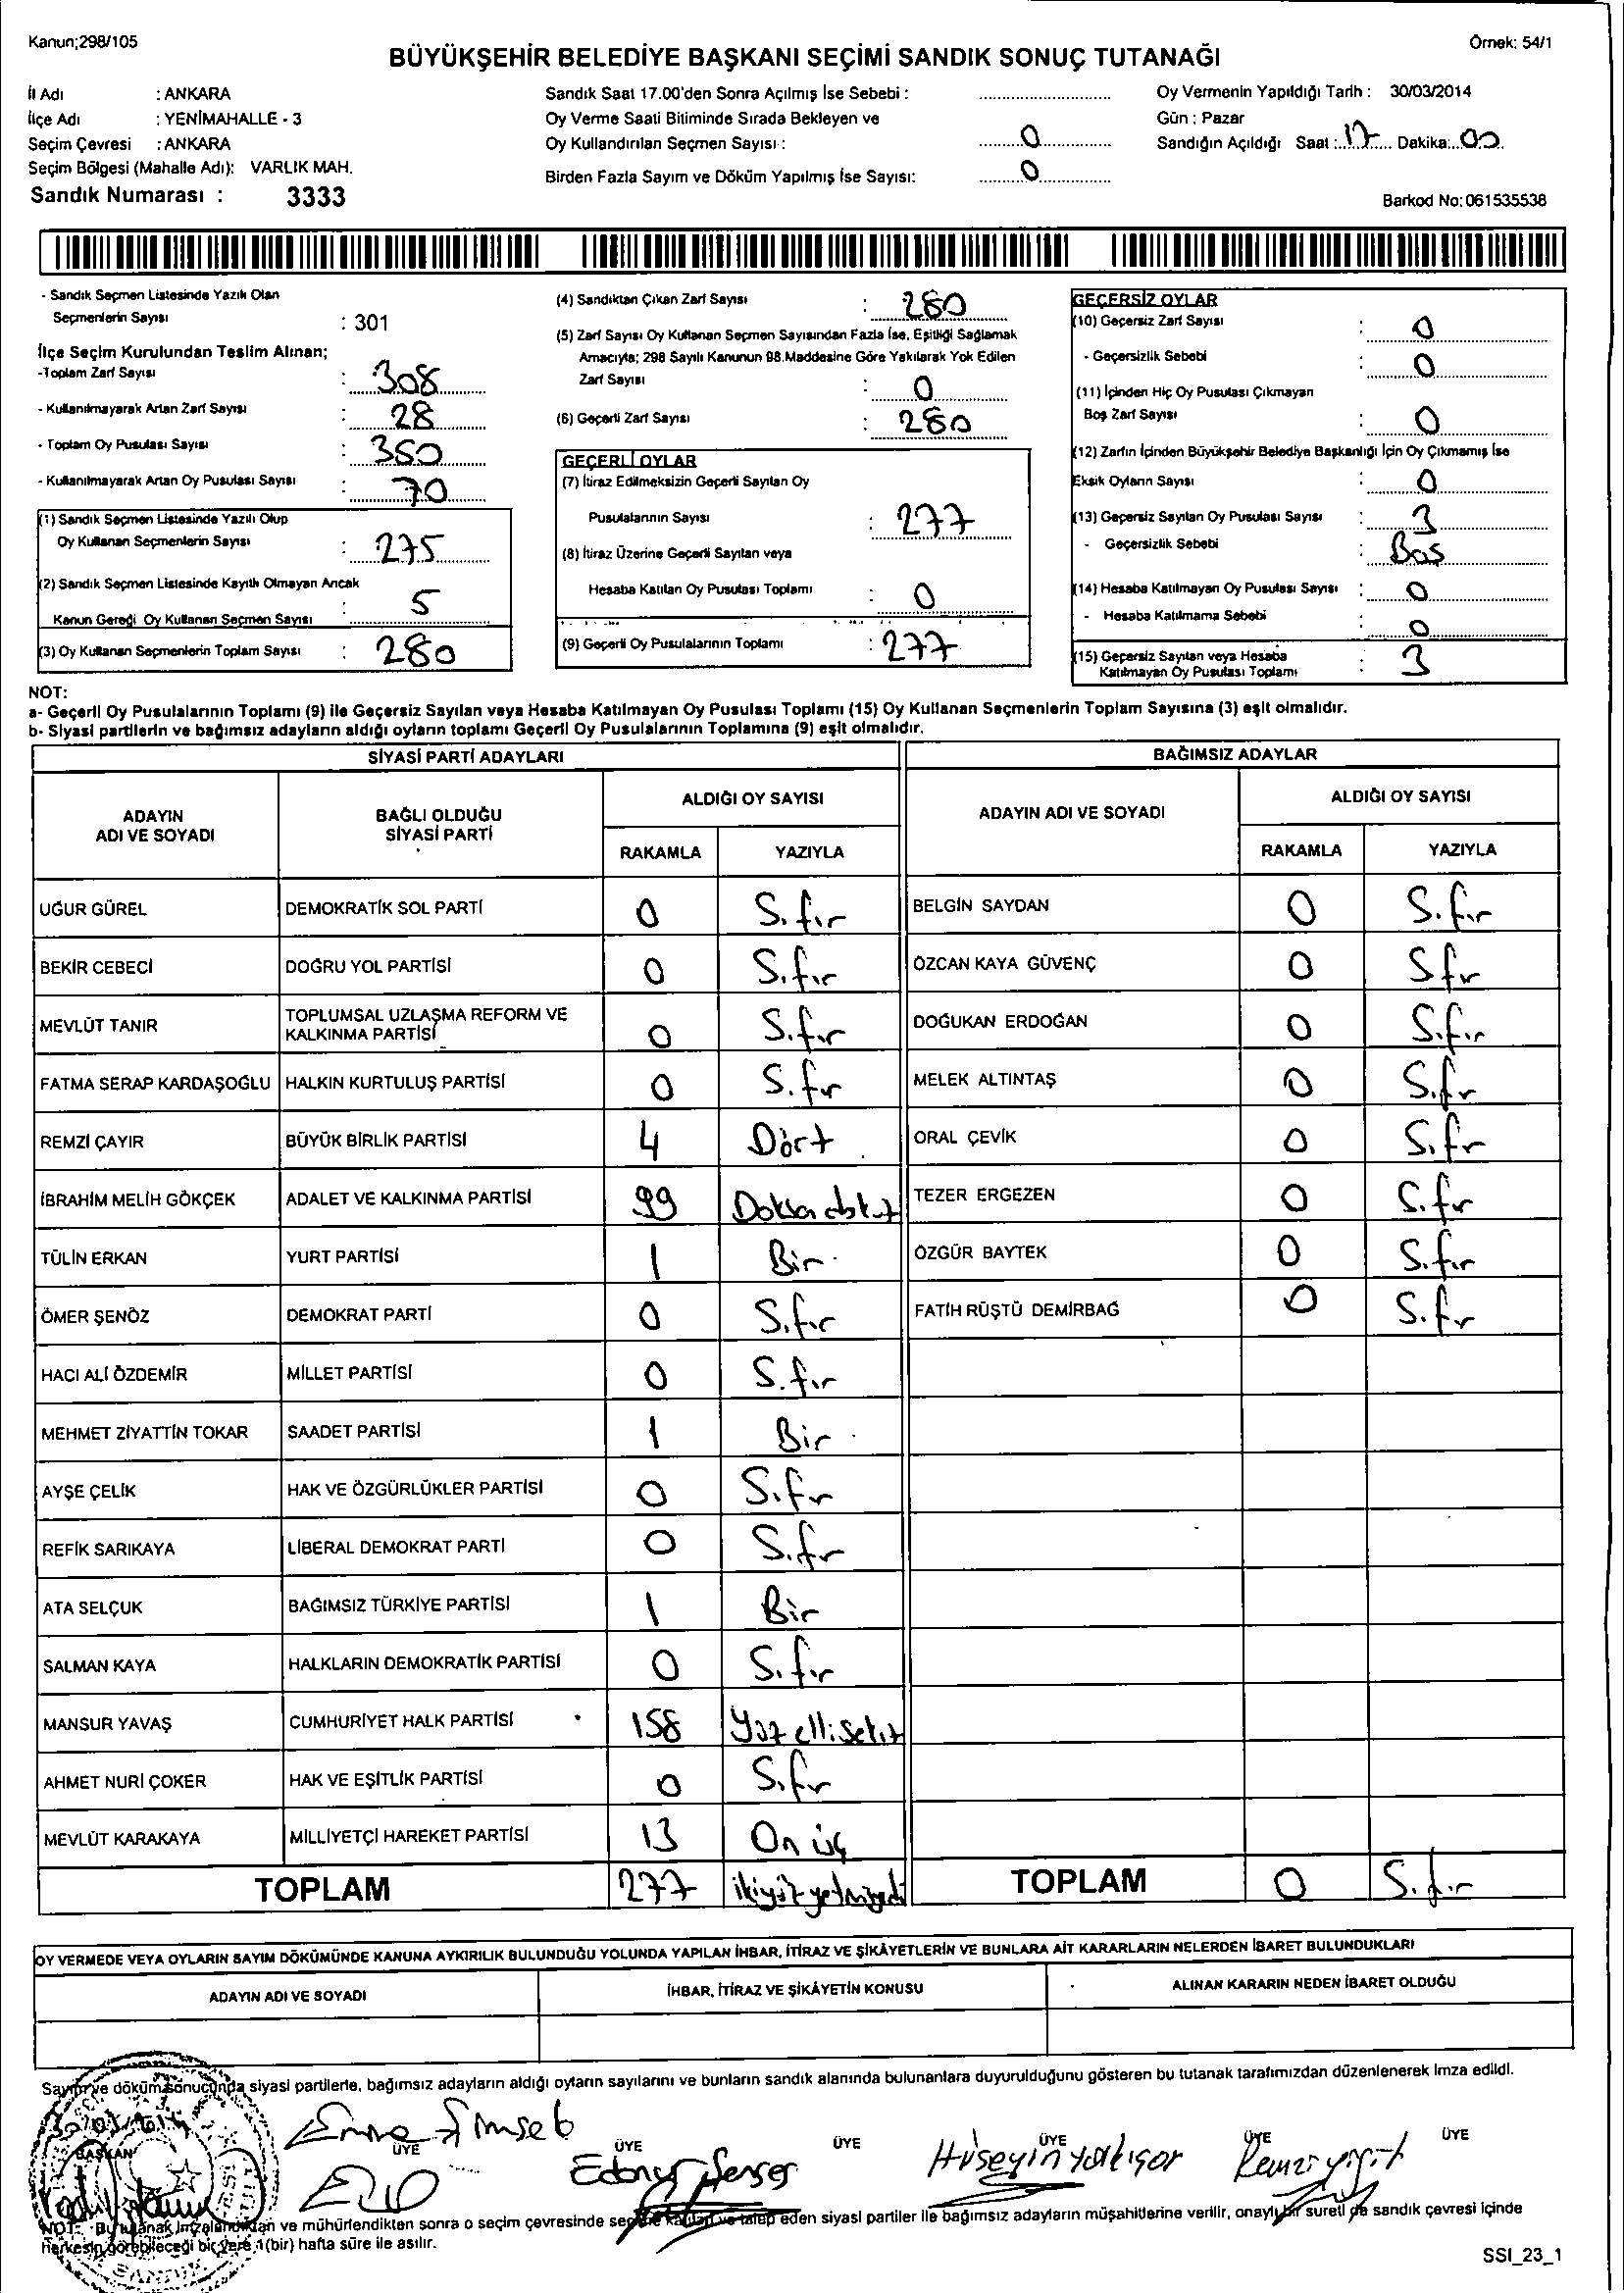 Kanun;298/105
Örnek: 54/1
BÜYÜKŞEHİR BELEDİYE BAŞKANI SEÇİMİ SANDIK SONUÇ TUTANAĞI
İl Adı : ANKARA
İlçe Adı : YENİMAHALLE - 3
Seçim Çevresi : ANKARA
Seçim Bölgesi (Mahalle Adı): VARLIK MAH.
Sandık Numarası : 3333
Sandık Saat 17.00'den Sonra Açılmış İse Sebebi :
Oy Verme Saati Bitiminde Sırada Bekleyen ve
Oy Kullandırılan Seçmen Sayısı : 0
Birden Fazla Sayım ve Döküm Yapılmış İse Sayısı: 0
Oy Vermenin Yapıldığı Tarih : 30/03/2014
Gün : Pazar
Sandığın Açıldığı Saat : 17 Dakika: 00
Barkod No: 061535538
- Sandık Seçmen Listesinde Yazılı Olan
Seçmenlerin Sayısı : 301
İlçe Seçim Kurulundan Teslim Alınan;
-Toplam Zarf Sayısı : 308
- Kullanılmayarak Artan Zarf Sayısı : 28
- Toplam Oy Pusulası Sayısı : 350
- Kullanılmayarak Artan Oy Pusulası Sayısı : 70
(1) Sandık Seçmen Listesinde Yazılı Olup
Oy Kullanan Seçmenlerin Sayısı : 275
(2) Sandık Seçmen Listesinde Kayıtlı Olmayan Ancak
Kanun Gereği Oy Kullanan Seçmen Sayısı : 5
(3) Oy Kullanan Seçmenlerin Toplam Sayısı : 280
(4) Sandıktan Çıkan Zarf Sayısı : 280
(5) Zarf Sayısı Oy Kullanan Seçmen Sayısından Fazla İse, Eşitliği Sağlamak
Amacıyla; 298 Sayılı Kanunun 98.Maddesine Göre Yakılarak Yok Edilen
Zarf Sayısı : 0
(6) Geçerli Zarf Sayısı : 280
GEÇERLİ OYLAR
(7) İtiraz Edilmeksizin Geçerli Sayılan Oy
Pusulalarının Sayısı : 277
(8) İtiraz Üzerine Geçerli Sayılan veya
Hesaba Katılan Oy Pusulası Toplamı : 0
(9) Geçerli Oy Pusulalarının Toplamı : 277
GEÇERSİZ OYLAR
(10) Geçersiz Zarf Sayısı : 0
- Geçersizlik Sebebi : 0
(11) İçinden Hiç Oy Pusulası Çıkmayan
Boş Zarf Sayısı : 0
(12) Zarfın İçinden Büyükşehir Belediye Başkanlığı İçin Oy Çıkmamış İse
Eksik Oyların Sayısı : 0
(13) Geçersiz Sayılan Oy Pusulası Sayısı : 3
- Geçersizlik Sebebi : Boş
(14) Hesaba Katılmayan Oy Pusulası Sayısı : 0
- Hesaba Katılmama Sebebi : 0
(15) Geçersiz Sayılan veya Hesaba
Katılmayan Oy Pusulası Toplamı : 3
NOT:
a- Geçerli Oy Pusulalarının Toplamı (9) ile Geçersiz Sayılan veya Hesaba Katılmayan Oy Pusulası Toplamı (15) Oy Kullanan Seçmenlerin Toplam Sayısına (3) eşit olmalıdır.
b- Siyasi partilerin ve bağımsız adayların aldığı oyların toplamı Geçerli Oy Pusulalarının Toplamına (9) eşit olmalıdır.
SİYASİ PARTİ ADAYLARI
ADAYIN ADI VE SOYADI BAĞLI OLDUĞU SİYASİ PARTİ ALDIĞI OY SAYISI
RAKAMLA YAZIYLA
UĞUR GÜREL DEMOKRATİK SOL PARTİ 0 Sıfır
BEKİR CEBECİ DOĞRU YOL PARTİSİ 0 Sıfır
MEVLÜT TANIR TOPLUMSAL UZLAŞMA REFORM VE KALKINMA PARTİSİ 0 Sıfır
FATMA SERAP KARDAŞOĞLU HALKIN KURTULUŞ PARTİSİ 0 Sıfır
REMZİ ÇAYIR BÜYÜK BİRLİK PARTİSİ 4 Dört
İBRAHİM MELİH GÖKÇEK ADALET VE KALKINMA PARTİSİ 99
TÜLİN ERKAN YURT PARTİSİ 1 Bir
ÖMER ŞENÖZ DEMOKRAT PARTİ 0 Sıfır
HACI ALİ ÖZDEMİR MİLLET PARTİSİ 0 Sıfır
MEHMET ZİYATTİN TOKAR SAADET PARTİSİ 1 Bir
AYŞE ÇELİK HAK VE ÖZGÜRLÜKLER PARTİSİ 0 Sıfır
REFİK SARIKAYA LİBERAL DEMOKRAT PARTİ 0 Sıfır
ATA SELÇUK BAĞIMSIZ TÜRKİYE PARTİSİ 1 Bir
SALMAN KAYA HALKLARIN DEMOKRATİK PARTİSİ 0 Sıfır
MANSUR YAVAŞ CUMHURİYET HALK PARTİSİ 158 Yüz elli sekiz
AHMET NURİ ÇOKER HAK VE EŞİTLİK PARTİSİ 0 Sıfır
MEVLÜT KARAKAYA MİLLİYETÇİ HAREKET PARTİSİ 13 On üç
TOPLAM 277 ikiyüz yetmişyedi
BAĞIMSIZ ADAYLAR
ADAYIN ADI VE SOYADI ALDIĞI OY SAYISI
RAKAMLA YAZIYLA
BELGİN SAYDAN 0 Sıfır
ÖZCAN KAYA GÜVENÇ 0 Sıfır
DOĞUKAN ERDOĞAN 0 Sıfır
MELEK ALTINTAŞ 0 Sıfır
ORAL ÇEVİK 0 Sıfır
TEZER ERGEZEN 0 Sıfır
ÖZGÜR BAYTEK 0 Sıfır
FATİH RÜŞTÜ DEMİRBAĞ 0 Sıfır
TOPLAM 0 Sıfır
OY VERMEDE VEYA OYLARIN SAYIM DÖKÜMÜNDE KANUNA AYKIRILIK BULUNDUĞU YOLUNDA YAPILAN İHBAR, İTİRAZ VE ŞİKÂYETLERİN VE BUNLARA AİT KARARLARIN NELERDEN İBARET BULUNDUKLARI
ADAYIN ADI VE SOYADI İHBAR, İTİRAZ VE ŞİKÂYETİN KONUSU ALINAN KARARIN NEDEN İBARET OLDUĞU
Sayım ve döküm sonucunda siyasi partilerle, bağımsız adayların aldığı oyların sayılarını ve bunların sandık alanında bulunanlara duyurulduğunu gösteren bu tutanak tarafımızdan düzenlenerek imza edildi.
BAŞKAN ÜYE ÜYE ÜYE ÜYE ÜYE ÜYE
Hüseyin Remzi Yiğit
NOT: Bu tutanak imzalandıktan ve mühürlendikten sonra o seçim çevresinde seçime katılan ve talep eden siyasi partiler ile bağımsız adayların müşahitlerine verilir, onaylı bir sureti de sandık çevresi içinde
herkesin görebileceği bir yere 1(bir) hafta süre ile asılır.
SSI_23_1